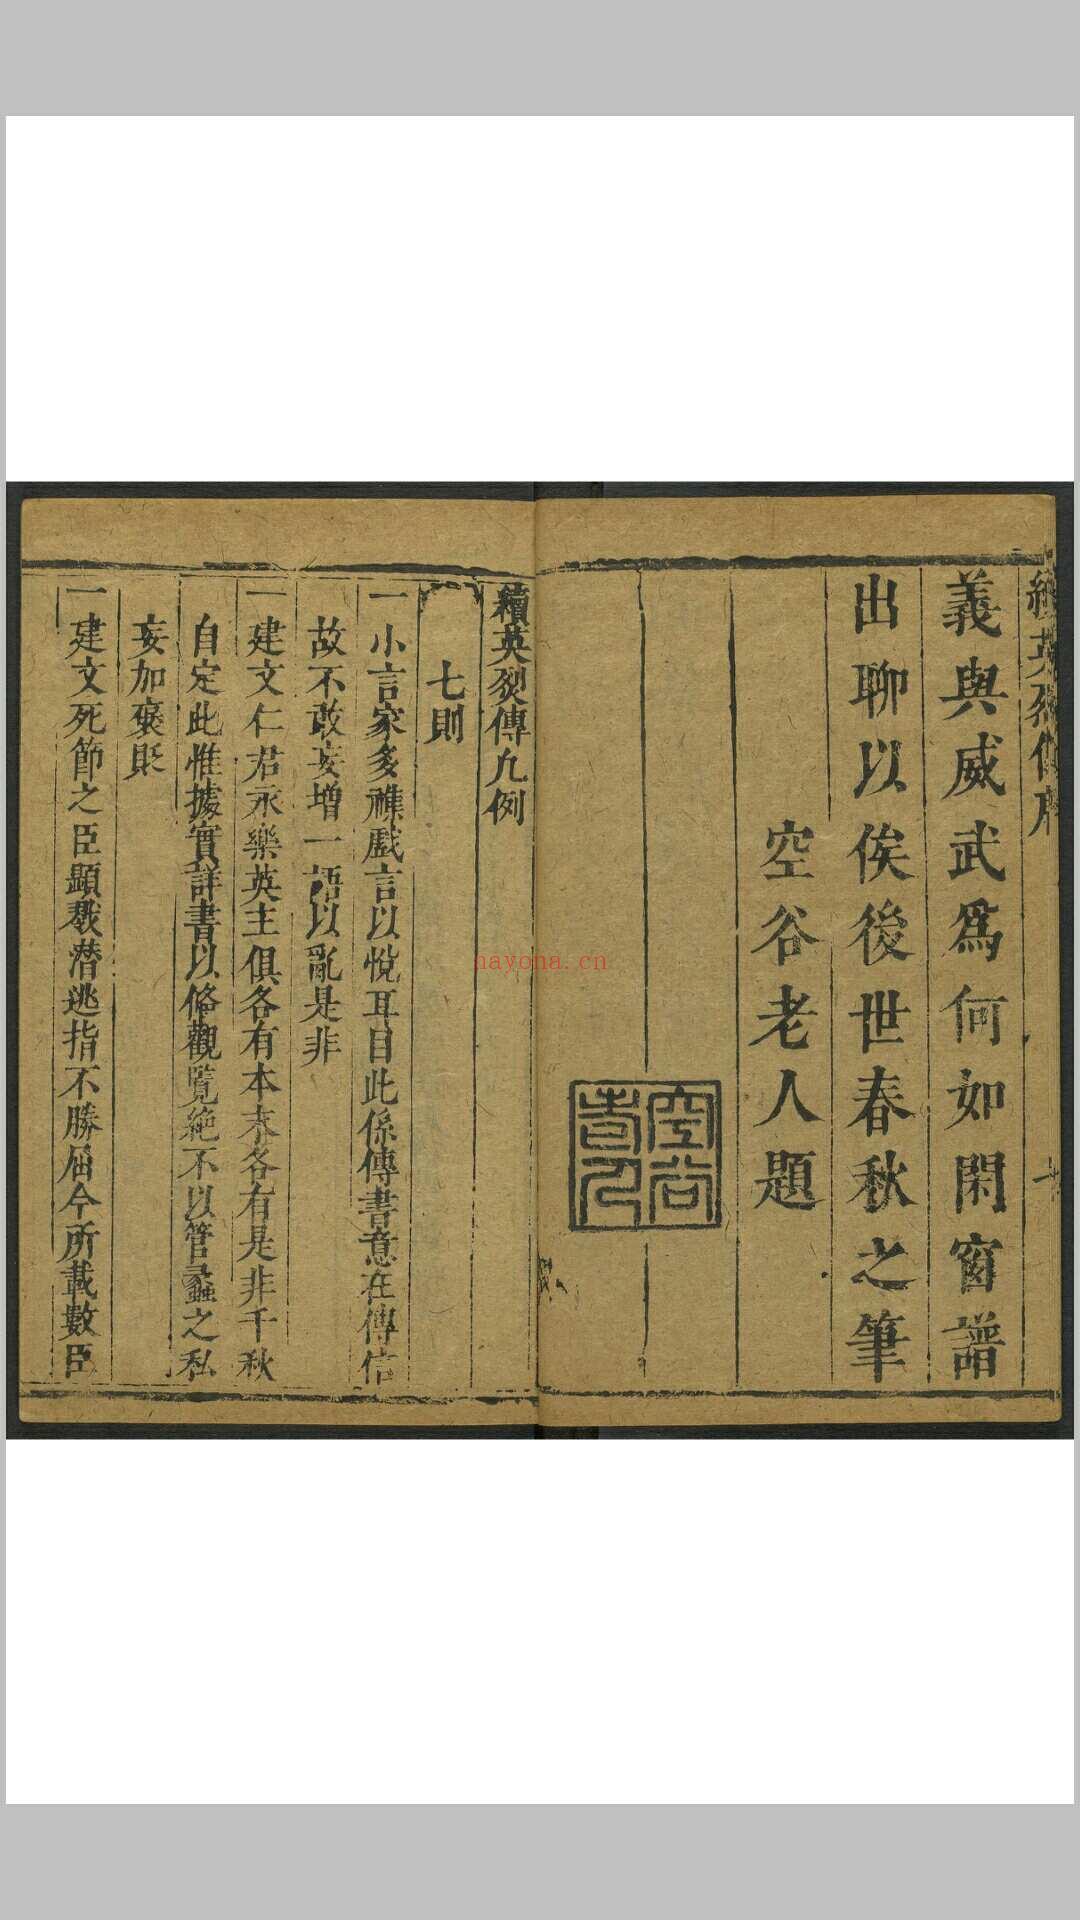 續英烈傳序
義與威武爲何如閑窗譜
出聊以俟後世春秋之筆
空谷老人題
空谷老人
續英烈傳凡例
七則
一小言家多襍戲言以悅耳目此係傳書意在傳信
故不敢妄增一語以亂是非
一建文仁君永樂英主俱各有本末各有是非千秋
自定此惟據實詳書以俻觀覽絶不以管蠡之私
妄加褒貶
一建文死節之臣顯戮潜逃指不勝屈今所載數臣
nayona.cn